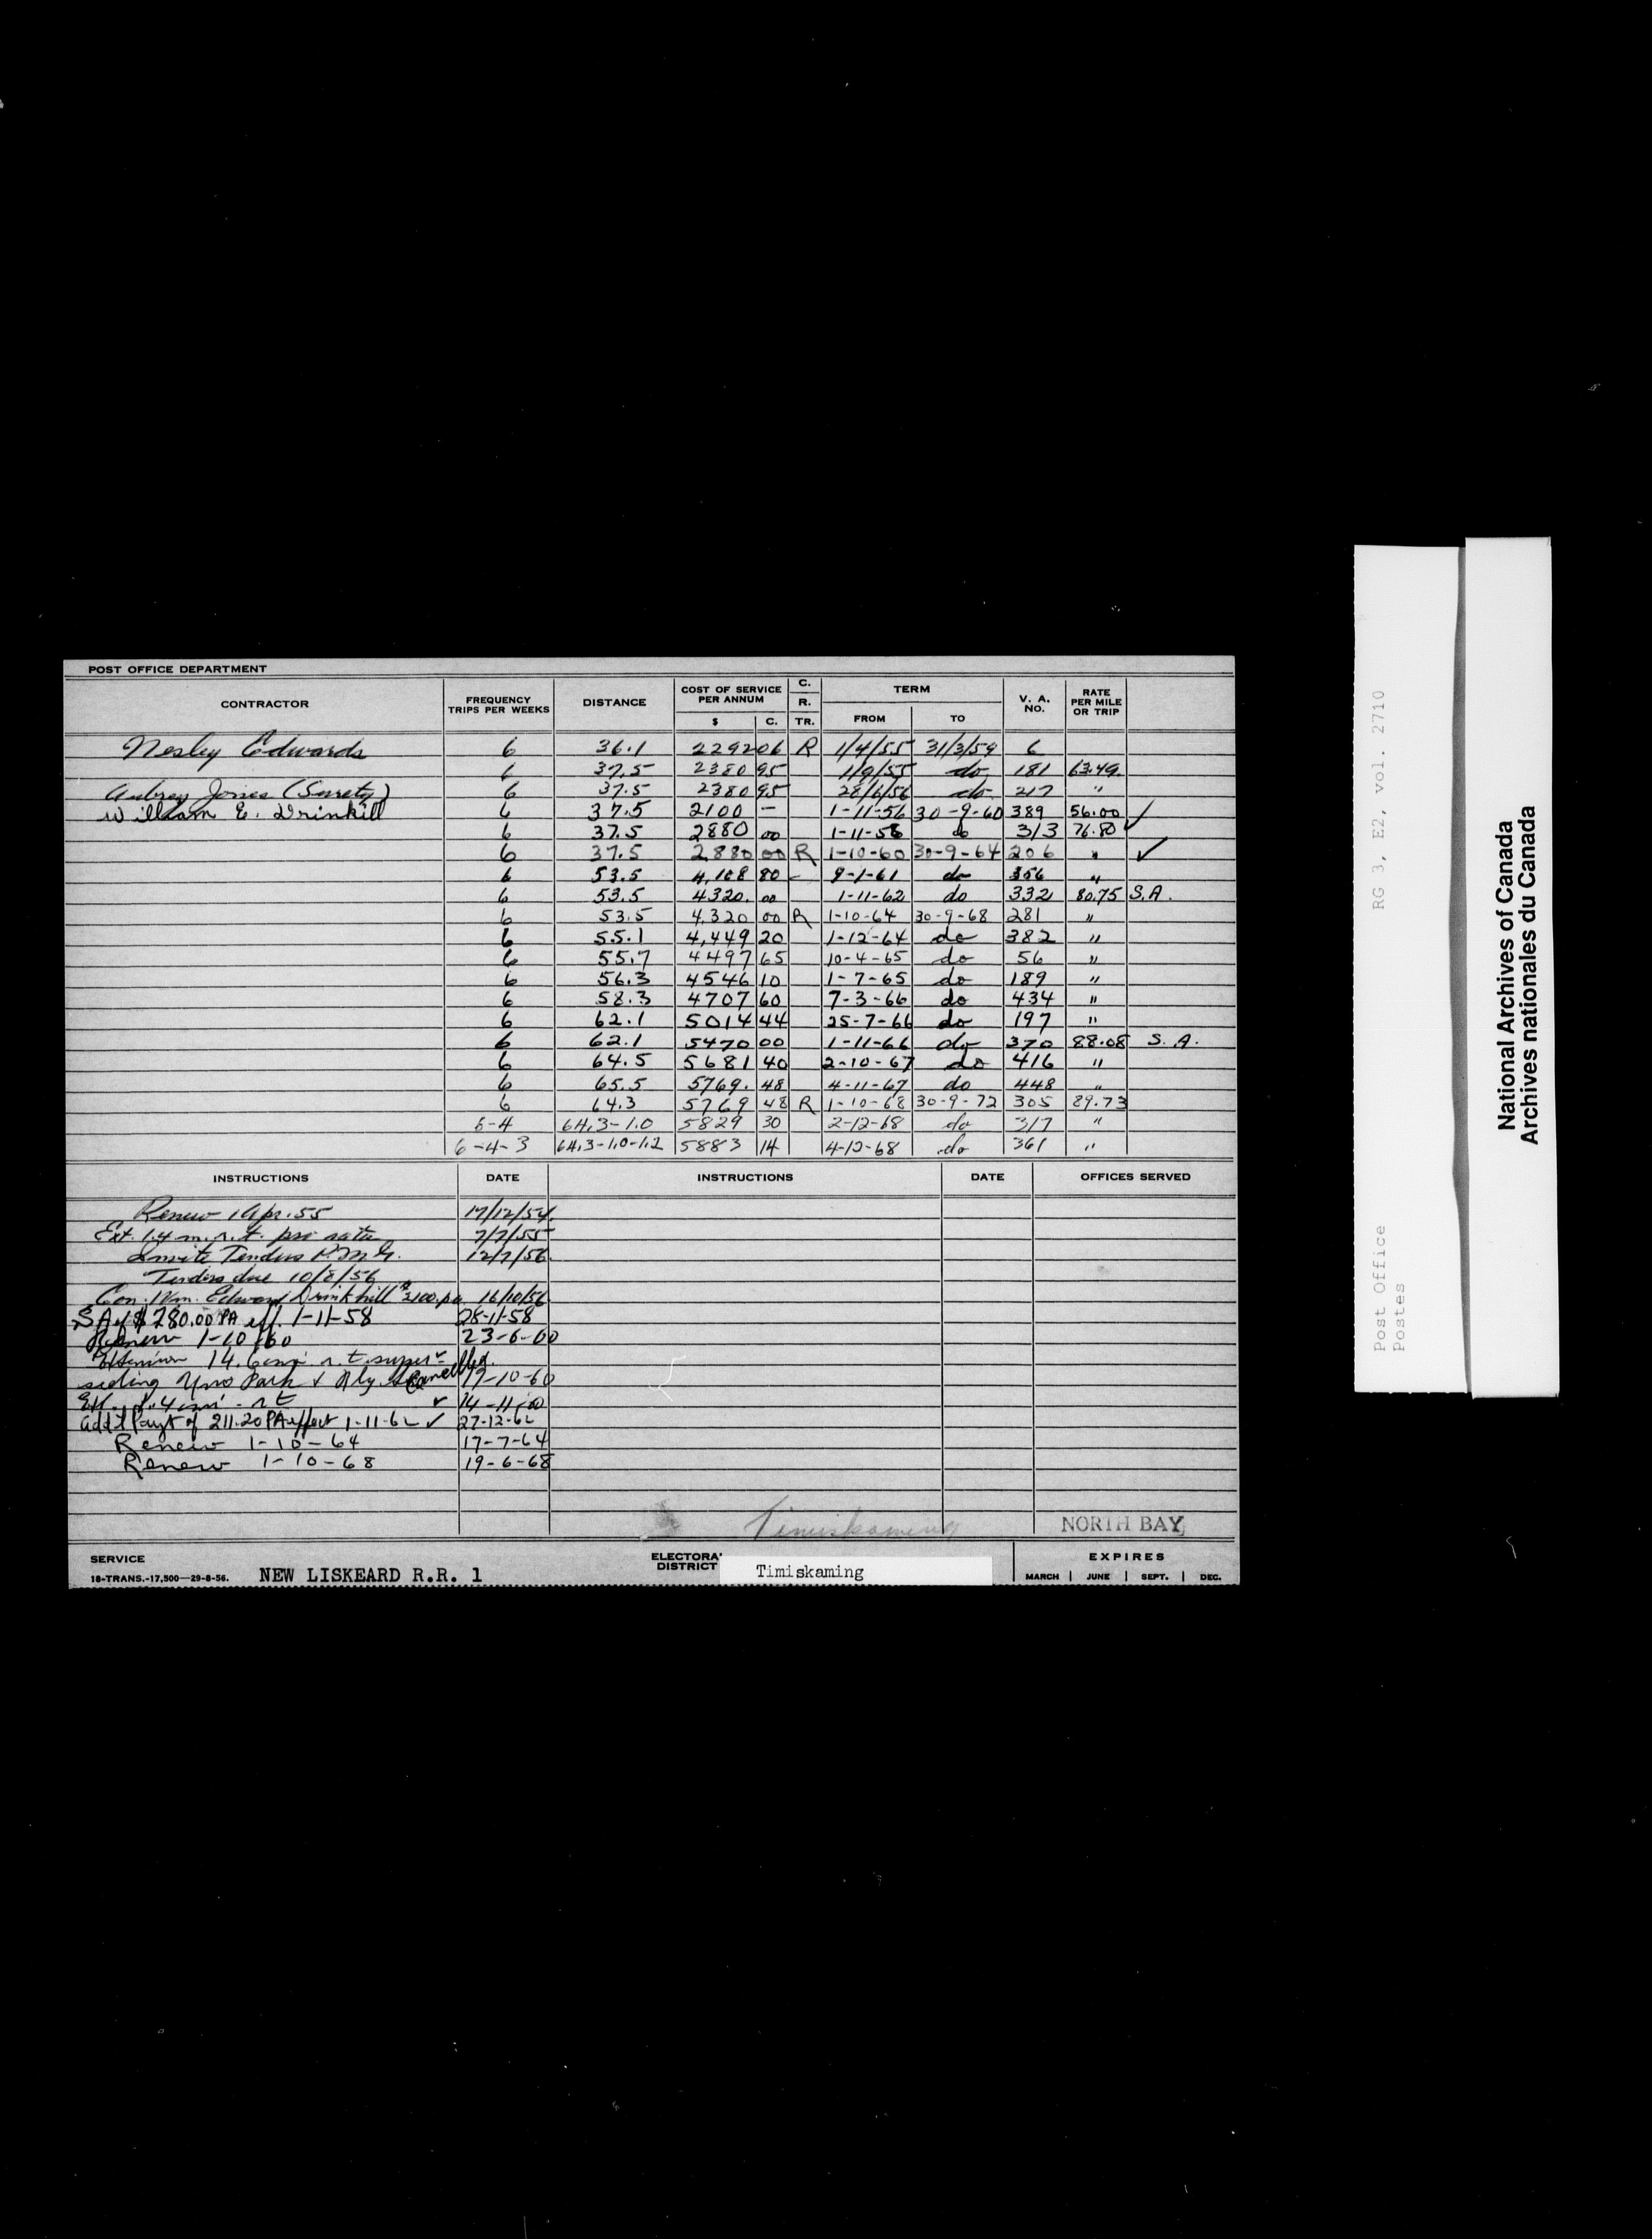 POST OFFICE DEPARTMENT
CONTRACTOR FREQUENCY TRIPS PER WEEKS DISTANCE COST OF SERVICE PER ANNUM $ C. C. R. TR. TERM FROM TO V. A. NO. RATE PER MILE OR TRIP
Nesley Edwards 6 36.1 2292 06 R 1/4/55 31/3/59 6
6 37.5 2380 95 1/9/55 do 181 63.49
Aubrey Jones (Surety) 6 37.5 2380 95 28/6/56 do 217 "
William E. Drinkill 6 37.5 2100 — 1-11-56 30-9-60 389 56.00 ✓
6 37.5 2880 00 1-11-58 do 313 76.80 ✓
6 37.5 2,880 00 R 1-10-60 30-9-64 206 " ✓
6 53.5 4,108 80 9-1-61 do 356 "
6 53.5 4320. 00 1-11-62 do 332 80.75 S.A.
6 53.5 4,320 00 R 1-10-64 30-9-68 281 "
6 55.1 4,449 20 1-12-64 do 382 "
6 55.7 4497 65 10-4-65 do 56 "
6 56.3 4546 10 1-7-65 do 189 "
6 58.3 4707 60 7-3-66 do 434 "
6 62.1 5014 44 25-7-66 do 197 "
6 62.1 5470 00 1-11-66 do 370 88.08 S.A.
6 64.5 5681 40 2-10-67 do 416 "
6 65.5 5769. 48 4-11-67 do 448 "
6 64.3 5769 48 R 1-10-68 30-9-72 305 89.73
6-4 64.3-1.0 5829 30 2-12-68 do 317 "
6-4-3 64.3-1.0-1.2 5883 14 4-12-68 do 361 "
INSTRUCTIONS DATE INSTRUCTIONS DATE OFFICES SERVED
Renew 1 Apr. 55 17/12/54
Ext. 1.4 m. r.t. pro rata 7/7/55
Invite Tenders P.M.G. 12/7/56
Tenders due 10/8/56
Con. Wm. Edward Drinkhill $2100. p.a. 16/10/56
SA of $780.00 PA eff. 1-11-58 28-11-58
Renew 1-10-60 23-6-60
Extension 14. r.t. super-
seding Uno Park & Rly. Stn Cancelled. 19-10-60
Ext. 1.4 mi - rt ✓ 14-11-60
Add'l Payt of 211.20 PA effect 1-11-62 ✓ 27-12-62
Renew 1-10-64 17-7-64
Renew 1-10-68 19-6-68
Timiskaming NORTH BAY
SERVICE NEW LISKEARD R.R. 1 ELECTORAL DISTRICT Timiskaming EXPIRES
18-TRANS.-17,500—29-8-56. MARCH | JUNE | SEPT. | DEC.
RG 3, E2, vol. 2710
Post Office
Postes
National Archives of Canada
Archives nationales du Canada